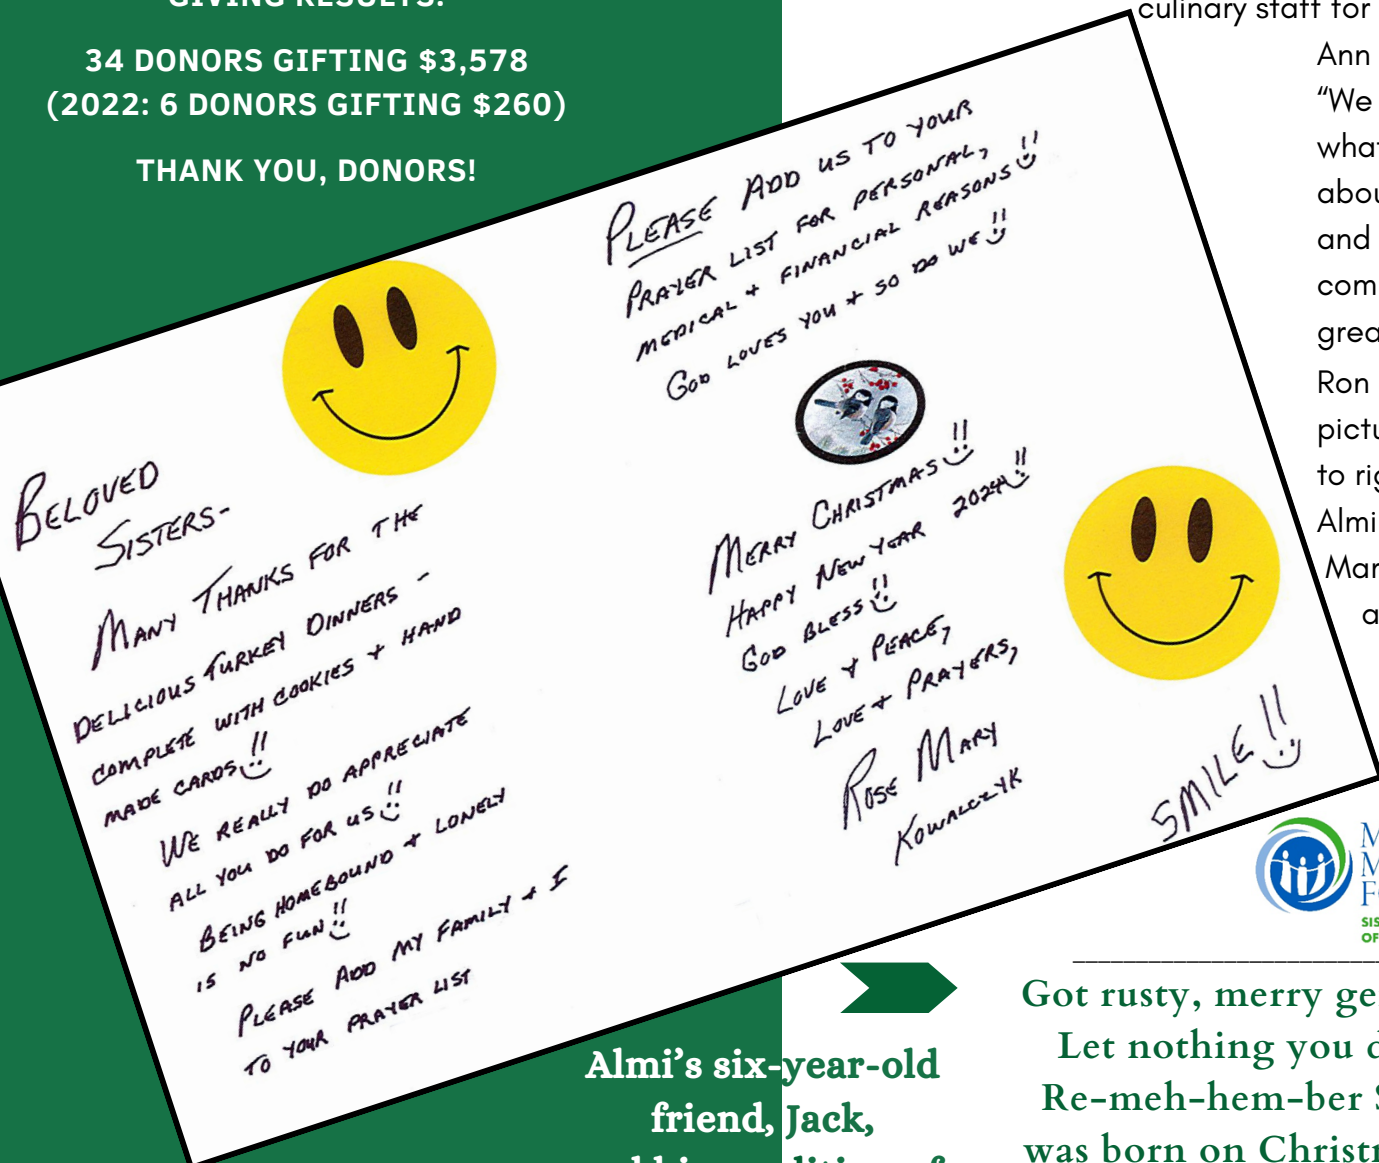 GIVING RESULTS:
34 DONORS GIFTING $3,578
(2022: 6 DONORS GIFTING $260)
THANK YOU, DONORS!
BELOVED
SISTERS-
MANY THANKS FOR THE
DELICIOUS TURKEY DINNERS -
COMPLETE WITH COOKIES + HAND
MADE CARDS!!
WE REALLY DO APPRECIATE
ALL YOU DO FOR US!!
BEING HOMEBOUND + LONELY
IS NO FUN!!
PLEASE ADD MY FAMILY + I
TO YOUR PRAYER LIST
PLEASE ADD US TO YOUR
PRAYER LIST FOR PERSONAL,
MEDICAL + FINANCIAL REASONS!!
GOD LOVES YOU + SO DO WE!!
MERRY CHRISTMAS!!
HAPPY NEW YEAR 2024!!
GOD BLESS!!
LOVE + PEACE,
LOVE + PRAYERS,
ROSE MARY
KOWALCZYK
SMILE!!
culinary staff for
Ann
“We
what
abou
and
com
grea
Ron
pictu
to rig
Almi
Mar
a
M
M
F
SIS
OF
Got rusty, merry ge
Let nothing you d
Re-meh-hem-ber S
was born on Christm
Almi’s six-year-old
friend, Jack,